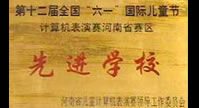 第十二届全国“六一”国际儿童节
计算机表演赛河南省赛区
先进学校
河南省儿童计算机表演赛领导工作委员会